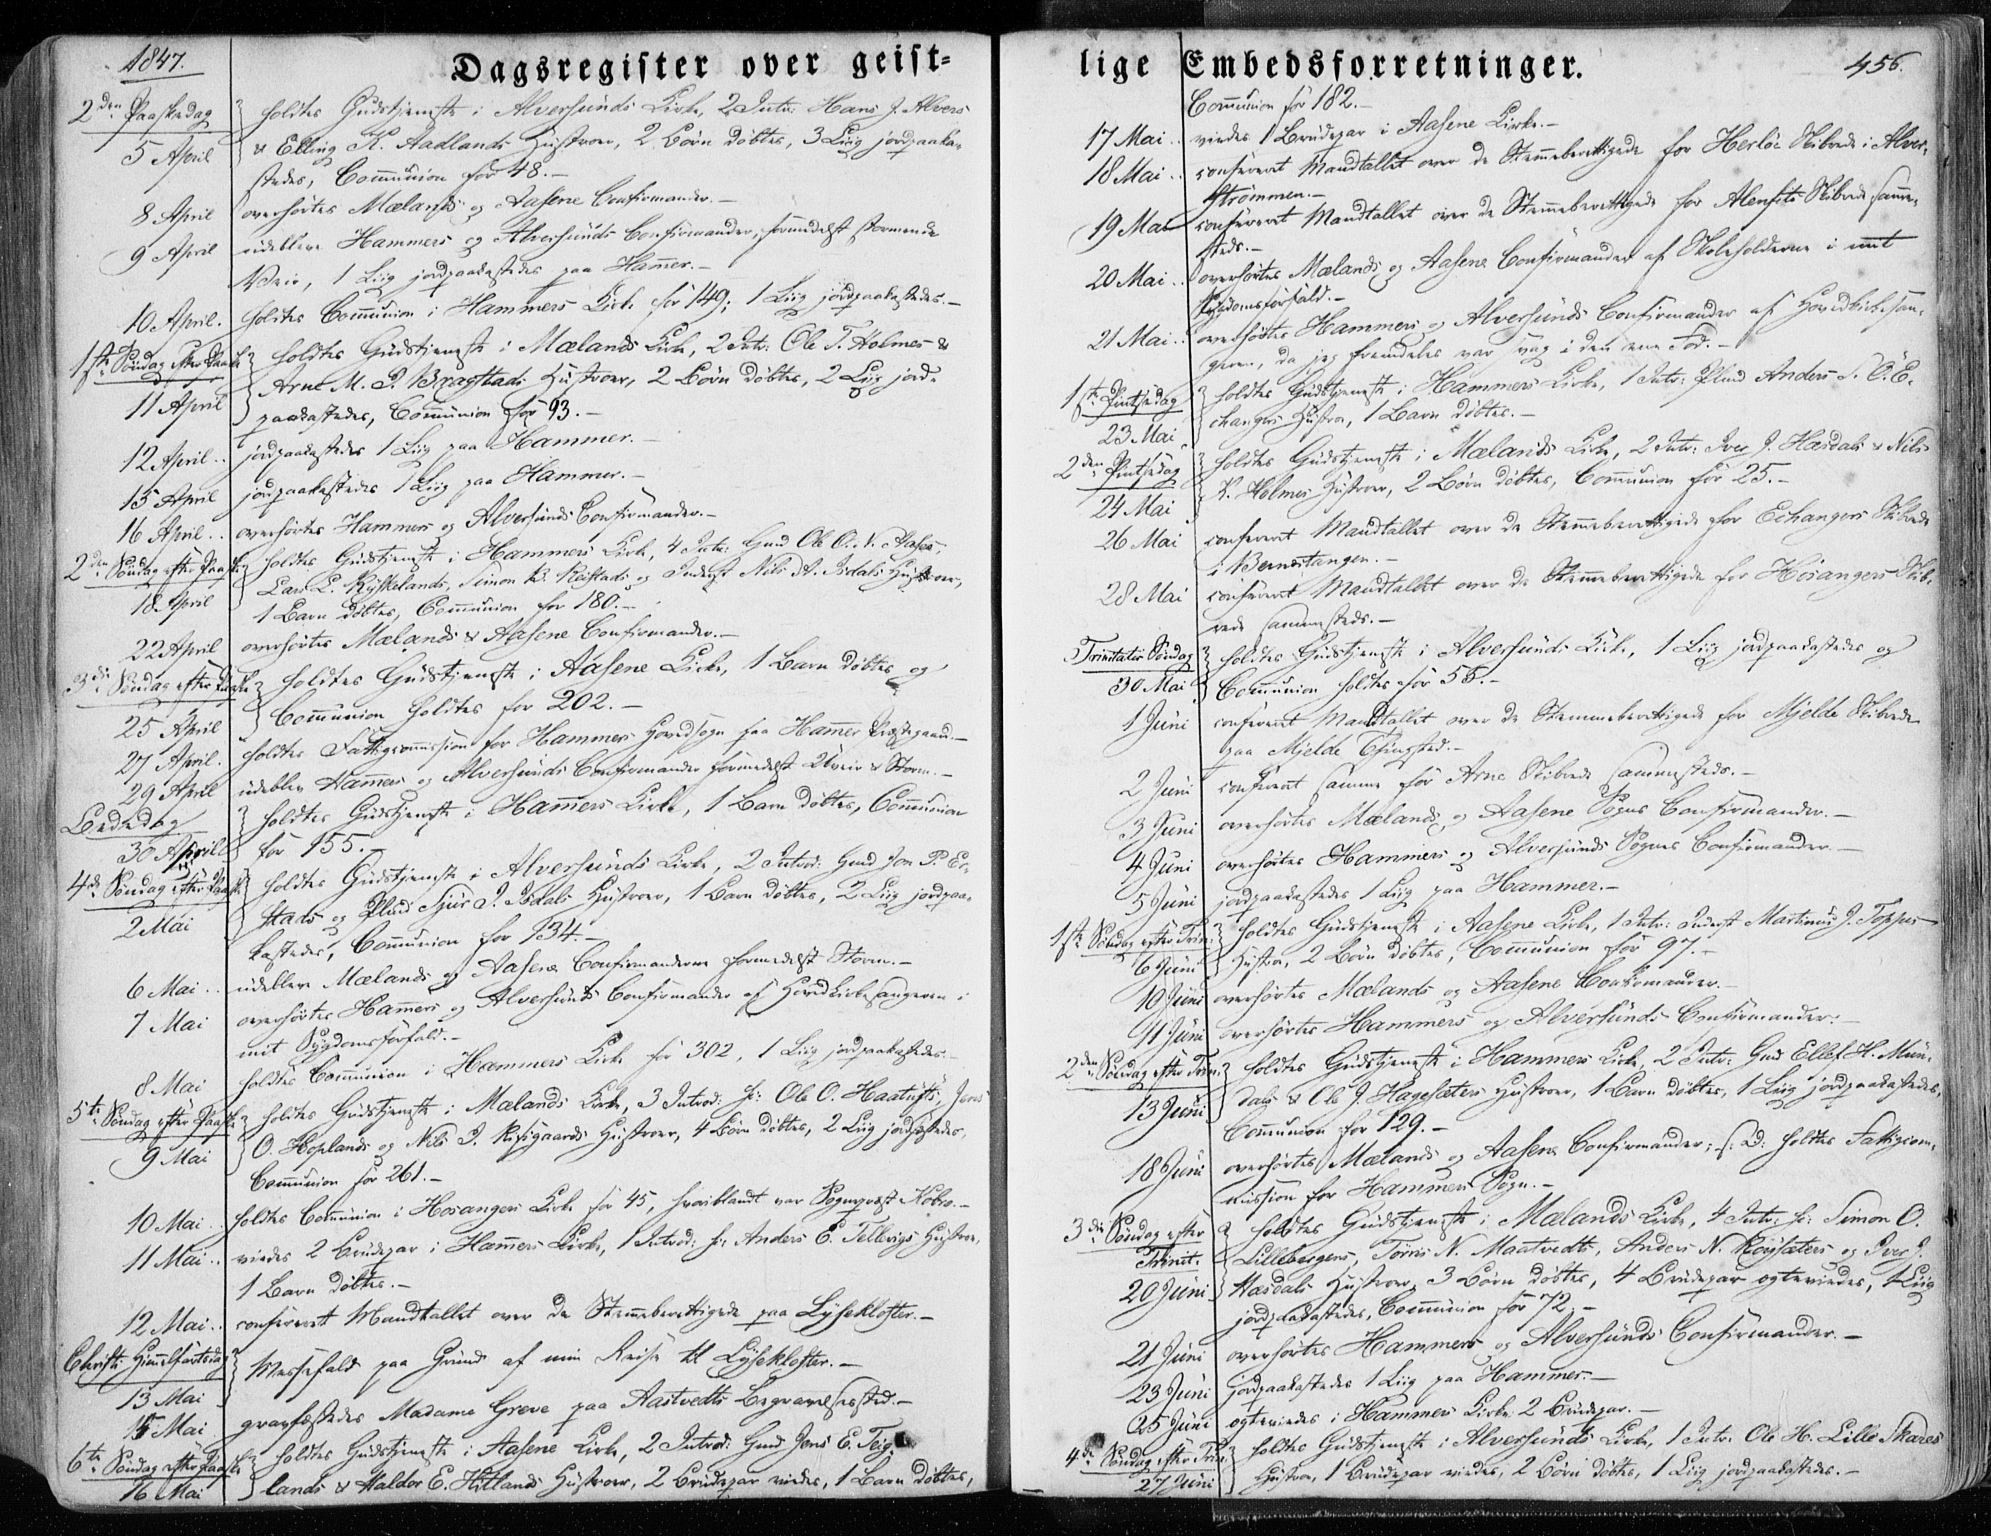 1847.
Dagsregister over geist-
2den Paaskedag holdtes Gudstjeneste i Alversunds Kirke, 2 Intr: Hans J. Alvers
5 April & Elling K. Aadlands Hustroer, 2 Børn døbtes, 3 Liig jordpaaka-
stedes, Communion for 48.-
8 April overhørtes Mælands og Aasene Confirmander.-
9 April udebleve Hammers og Alversunds Confirmander, formedelst stormende
Veir, 1 Liig jordpaakastedes paa Hamer.-
10 April. holdtes Communion i Hammers Kirke for 149; 1 Liig jordpaakastedes.-
1ste Søndag efter Paaske holdtes Gudstjeneste i Mælands Kirke, 2 Intr: Ole T. Holmes &
11 April Arne M. P. Bragstads Hustroer, 2 Børn døbtes, 2 Liig jord-
paakastedes, Communion for 93.-
12 April.. jordpaakastedes 1 Liig paa Hammer.-
15 April jordpaakastedes 1 Liig paa Hammer.-
16 April.. overhørtes Hammers og Alversunds Confirmander.-
2den Søndag efter Paaske holdtes Gudstjeneste i Hammers Kirke, 4 Intr: Gmd Ole O. N. Aases,
18 April Lars L. Kyskelands, Simon B. Reistads og Inderst Nils A. Isdals Hustroer,
1 Barn døbtes, Communion for 180.-
22 April overhørtes Mælands & Aasene Confirmander.-
3die Søndag efter Paaske holdtes Gudstjeneste i Aasene Kirke, 1 Barn døbtes og
25 April Communion holdtes for 202.-
27 April. holdtes Fattigcommission for Hammers Hovedsogn paa Hamer Præstegaard.-
29 April udebleve Hamers og Alversunds Confirmander formedelst Uveir & Storm.-
Bededag holdtes Gudstjeneste i Hamers Kirke, 1 Barn døbtes, Communion
30 April for 155.-
4de Søndag efter Paaske holdtes Gudstjeneste i Alversunds Kirke, 2 Introd: Gmd Jon P. Er-
2 Mai stads og Plmd Sjur J. Isdals Hustroer, 1 Barn døbtes, 2 Liig jordpaa-
kastedes, Communion for 134.-
6 Mai.. udebleve Mælands og Aasene Confirmanderne formedelst Storm.-
7 Mai overhørtes Hamers og Alversunds Confirmander af Hovedkirkesangeren i
mit Sygdomsforfald.-
8 Mai holdtes Communion i Hammers Kirke for 302, 1 Liig jordpaakastedes.-
5te Søndag efter Paaske holdtes Gudstjeneste i Mælands Kirke, 3 Introd: s: Ole O. Haatufts, Jens
9 Mai O. Hoplands og Nils J. Rissgaards Hustroer, 4 Børn døbtes, 2 Liig jordfæstedes,
Communion for 261.-
10 Mai.. holdtes Communion i Hosangers Kirke for 45, hvoriblandt var Sognepræst Kobro.-
11 Mai.. viedes 2 Brudepar i Hamers Kirke, 1 Introd: s: Anders E. Tellevigs Hustroe,
1 Barn døbtes.-
12 Mai.. confereret Mandtallet over de Stemmeberettigede paa Lysekloster.-
Christi Himmelfartsdag Messefald paa Grund af min Reise til Lysekloster.-
13 Mai
15 Mai gravfæstedes Madame Greve paa Aastvedts Begravelsessted.-
6te Søndag efter Paaske holdtes Gudstjeneste i Aasene Kirke, 2 Introd: Gmd Jens E. Teig-
16 Mai lands & Haldor E. Hitlands Hustroer, 2 Brudepar viedes, 1 Barn døbtes,
lige Embedsforretninger.
456.
Communion for 182.-
17 Mai.. viedes 1 Brudepar i Aasene Kirke.-
18 Mai.. confereret Mandtallet over de Stemmeberettigede for Herløe Skibrede i Alver-
strømmen.-
19 Mai confereret Mandtallet over de Stemmeberettigede for Alenfits Skibrede samme-
steds.-
20 Mai.. overhørtes Mælands og Aasene Confirmander af Skoleholderne i mit
Sygdomsforfald.-
21 Mai.. overhørtes Hammers og Alversunds Confirmander af Hovedkirkesan-
geren, da jeg fremdeles var svag i den ene Fod.-
1ste Pintsedag holdtes Gudstjeneste i Hammers Kirke, 1 Intr: Plmd Anders S. O. E-
23 Mai changers Hustroe, 1 Barn døbtes.-
2den Pintsedag holdtes Gudstjeneste i Mælands Kirke, 2 Intr: Iver J. Hæsdals & Nils
24 Mai K. Holmes Hustroer, 2 Børn døbtes, Communion for 25.-
26 Mai confereret Mandtallet over de Stemmeberettigede for Echangers Skibrede
i Bernestangen.-
28 Mai confereret Mandtallet over de Stemmeberettigede for Hosangers Skib-
rede sammesteds.-
Trinitatis Søndag holdtes Gudstjeneste i Alversunds Kirke, 1 Liig jordpaakastedes og
30 Mai Communion holdtes for 56.-
1 Juni confereret Mandtallet over de Stemmeberettigede for Mjelde Skibrede
paa Mjelde Thingsted.-
2 Juni confereret samme for Arne Skibrede sammesteds.-
3 Juni overhørtes Mælands og Aasene Sogns Confirmander.-
4 Juni overhørtes Hammers og Alversunds Sognes Confirmander.-
5 Juni jordpaakastedes 1 Liig paa Hammer.-
1ste Søndag efter Trin: holdtes Gudstjeneste i Aasene Kirke, 1 Intr: Inderst Martinus J. Toppes
6 Juni Hustroe, 2 Børn døbtes, Communion for 97.-
10 Juni overhørtes Mælands og Aasene Confirmander.-
11 Juni overhørtes Hammers og Alversunds Confirmander.-
2den Søndag efter Trin: holdtes Gudstjeneste i Hammers Kirke, 2 Intr: Gmd Ellef H. Mun-
13 Juni dals & Ole J. Hagesæters Hustroer, 1 Barn døbtes, 1 Liig jordpaakastedes,
Communion for 129.-
18 Juni overhørtes Mælands og Aasene Confirmander; s: D: holdtes Fattigcom-
mission for Hammers Sogn.-
3die Søndag efter Trinit. holdtes Gudstjeneste i Mælands Kirke, 4 Intr: s: Simon O.
Lillebergens, Tørris N. Maatvedts, Anders N. Røysæters og Iver J.
20 Juni Hæsdals Hustroer, 3 Børn døbtes, 4 Brudepar ægteviedes, 1 Liig
jordpaakastedes, Communion for 72.-
21 Juni overhørtes Hammers og Alversunds Confirmander.-
23 Juni jordpaakastedes 1 Liig paa Hammer.-
25 Juni ægteviedes i Hammers Kirke 2 Brudepar.-
4de Søndag efter Trin: holdtes Gudstjeneste i Alversunds Kirke, 1 Intr: Ole H. Lille Skares
27 Juni Hustroe, 1 Brudepar viedes, 2 Børn døbtes, 1 Liig jordpaakastedes.-